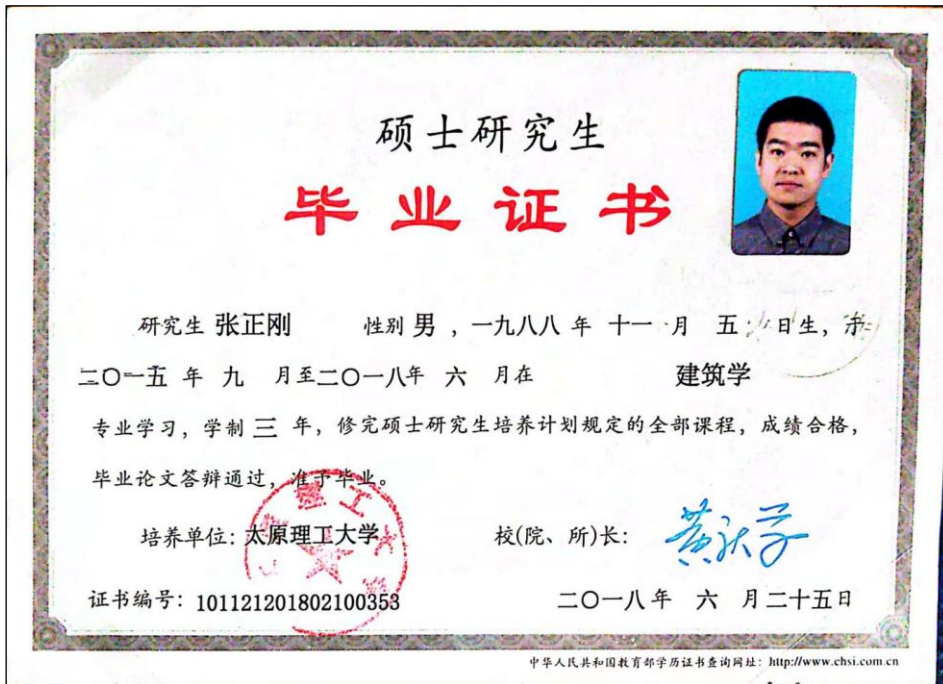 硕士研究生
毕业证书
研究生 张正刚 性别 男 ，一九八八 年 十一 月 五 日生，于
二〇一五 年 九 月至二〇一八年 六 月在 建筑学
专业学习，学制 三 年，修完硕士研究生培养计划规定的全部课程，成绩合格，
毕业论文答辩通过，准予毕业。
培养单位：太原理工大学 校(院、所)长：
证书编号：101121201802100353 二〇一八年 六 月二十五日
中华人民共和国教育部学历证书查询网址：http://www.chsi.com.cn